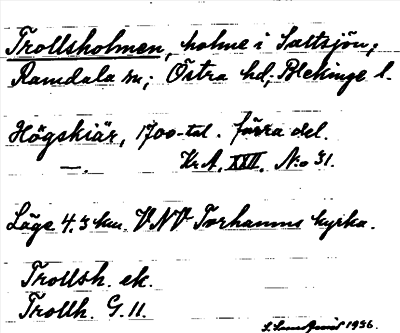 Trollsholmen, holme i Saltsjön;
Ramdala sn; Östra hd, Blekinge l.
Högskiär, 1700-tal. förra del.
—. Kr.A. XXII. N:o 31.
Läge 4.3 km. VNV Torhamns kyrka.
Trollsh. ek.
Trollh. G. 11.
S. 1936.